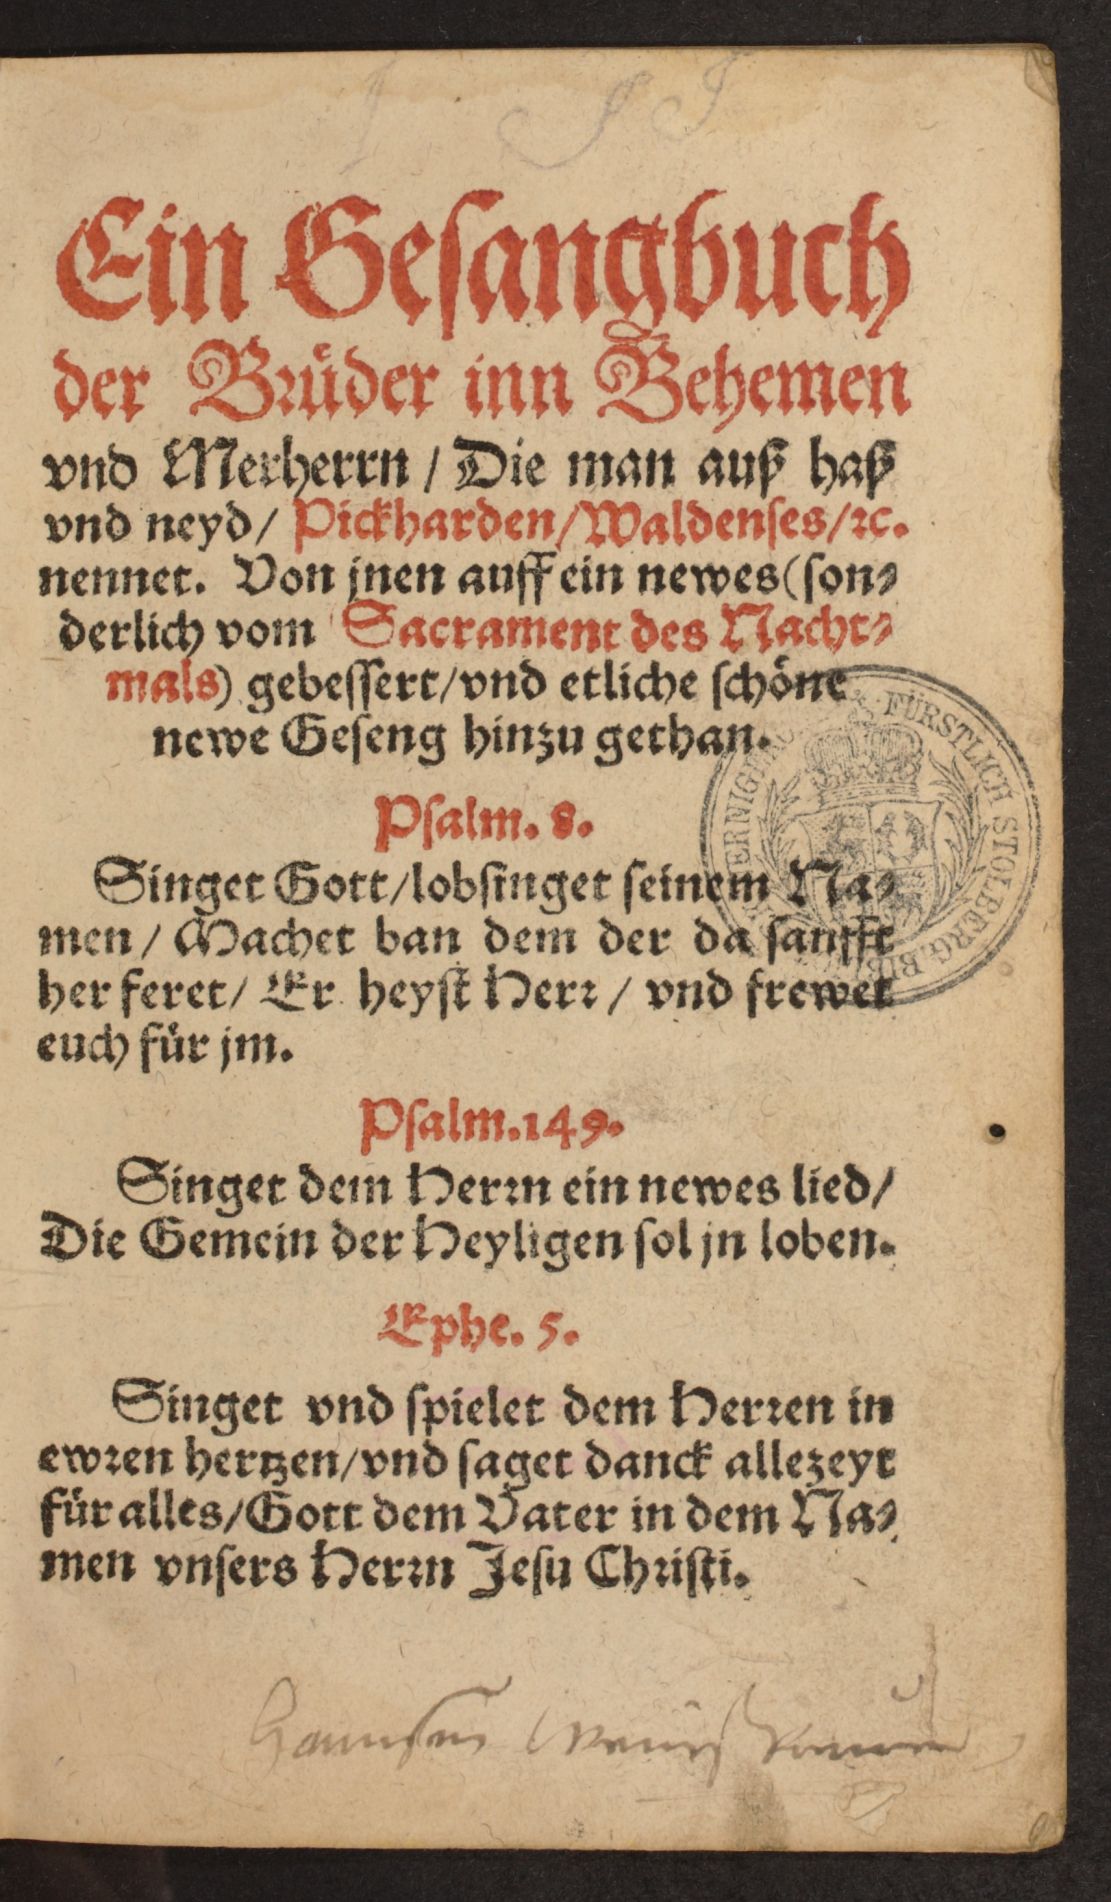 Ein Gesangbuch
der Brůder inn Behemen
vnd Merherrn / Die man auß haß
vnd neyd / Pickharden / Waldenses / ꝛc.
nennet. Von jnen auff ein newes (son⸗
derlich vom Sacrament des Nacht⸗
mals) gebessert / vnd etliche schöne
newe Geseng hinzu gethan.
FÜRSTLICH STOLBERG
Psalm. 8.
Singet Gott / lobsinget seinem Na⸗
men / Machet ban dem der da sanfft
her feret / Er heyst Herr / vnd frewet
euch für jm.
Psalm. 149.
Singet dem Herrn ein newes lied /
Die Gemein der Heyligen sol jn loben.
Ephe. 5.
Singet vnd spielet dem Herren in
ewren hertzen / vnd saget danck allezeyt
für alles / Gott dem Vater in dem Na⸗
men vnsers Herrn Jesu Christi.